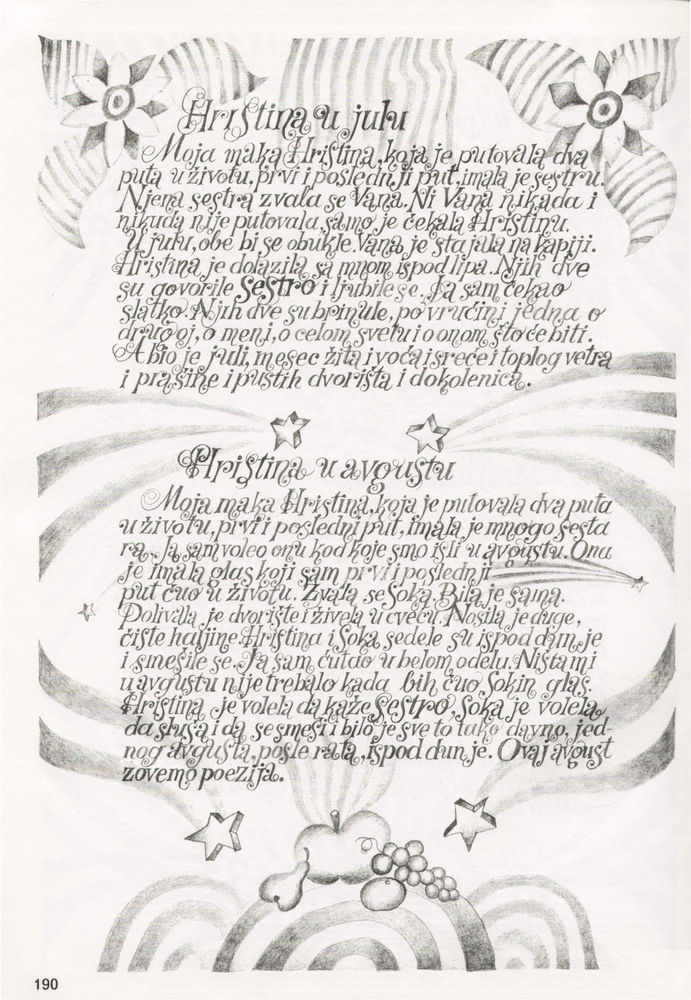 Hristina u julu
Moja majka Hristina, koja je putovala dva
puta u životu, prvi i poslednji put, imala je sestru.
Njena sestra zvala se Vana. Ni Vana nikada i
nikuda nije putovala, samo je čekala Hristinu.
U julu, obe bi se obukle. Vana je stajala na kapiji.
Hristina je dolazila sa mnom ispod lipa. Njih dve
su govorile sestro i ljubile se. Ja sam čekao
slatko. Njih dve su brinule, po vrućini jedna o
drugoj, o meni, o celom svetu i o onom što će biti.
A bio je juli, mesec žita i voća i sreće i toplog vetra
i prašine i pustih dvorišta i dokolenica.
Hristina u avgustu
Moja majka Hristina, koja je putovala dva puta
u životu, prvi i poslednji put, imala je mnogo sesta
ra. Ja sam voleo onu kod koje smo išli u avgustu. Ona
je imala glas koji sam prvi i poslednji
put čuo u životu. Zvala se Soka. Bila je sama.
Polivala je dvorište i živela u cveću. Nosila je duge,
čiste haljine. Hristina i Soka sedele su ispod dunje
i smešile se. Ja sam ćutao u belom odelu. Ništa mi
u avgustu nije trebalo kada bih čuo Sokin glas.
Hristina je volela da kaže sestro, Soka je volela
da sluša i da se smeši i bilo je sve to tako davno, jed-
nog avgusta, posle rata, ispod dunje. Ovaj avgust
zovemo poezija.
190